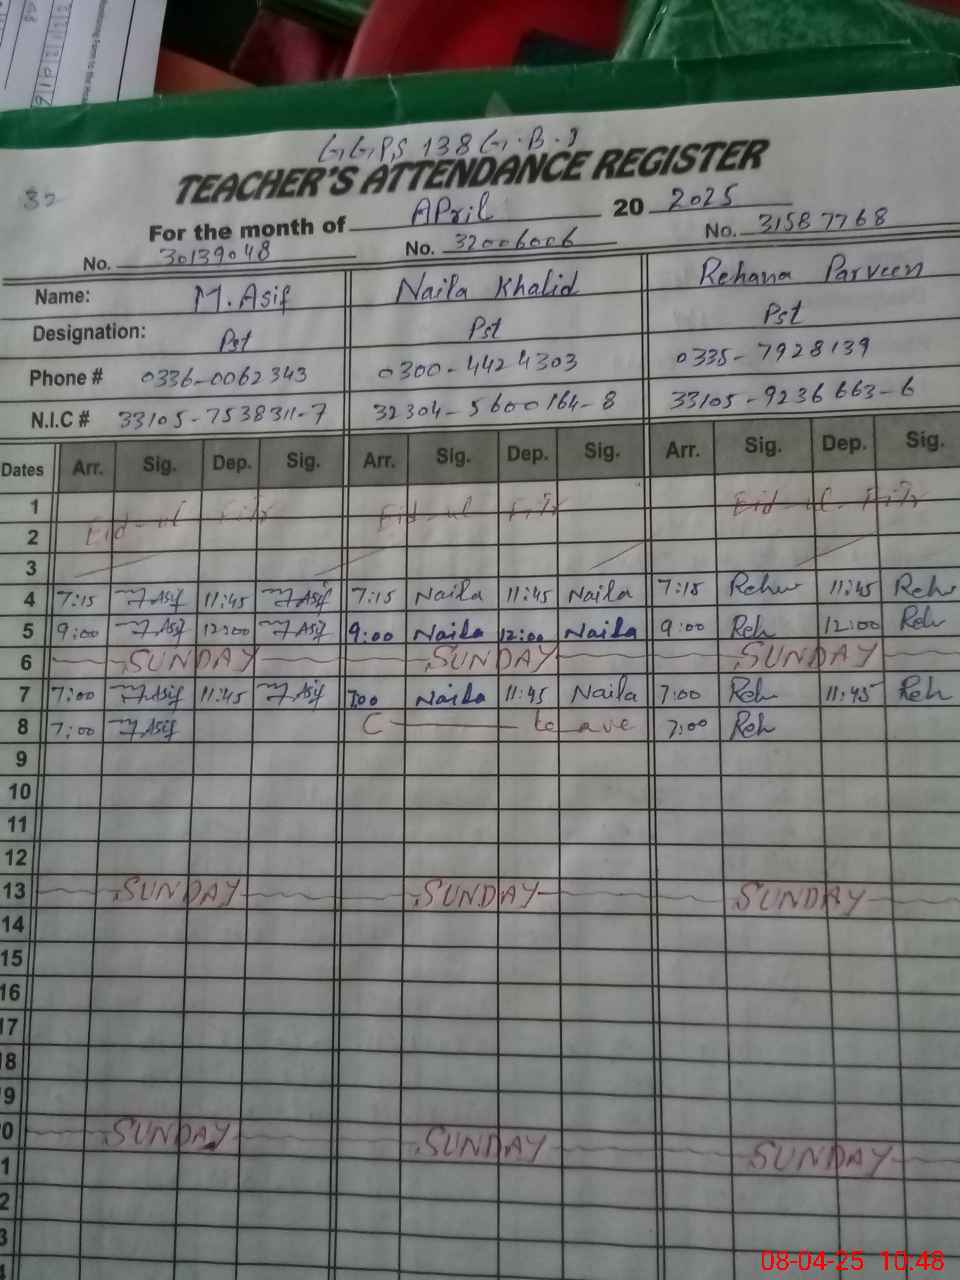 G.G.P.S 138 G.B.J
TEACHER'S ATTENDANCE REGISTER
32
For the month of APril 20 2025
No. 30139048 No. 32006006 No. 31587768
Name: M. Asif Naila Khalid Rehana Parveen
Designation: Pst Pst Pst
Phone # 0336-0062343 0300-4424303 0335-7928139
N.I.C # 33105-7538311-7 32304-5600164-8 33105-9236663-6
Dates Arr. Sig. Dep. Sig. Arr. Sig. Dep. Sig. Arr. Sig. Dep. Sig.
1 Eid-ul Fitr Eid-ul Fitr Eid-ul-Fitr
2
3
4 7:15 M Asif 11:45 M Asif 7:15 Naila 11:45 Naila 7:15 11:45
5 9:00 M Asif 12:00 M Asif 9:00 Naila 12:00 Naila 9:00 Reh 12:00 Reh
6 SUNDAY SUNDAY SUNDAY
7 7:00 M Asif 11:45 M Asif 7:00 Naila 11:45 Naila 7:00 Reh 11:45 Reh
8 7:00 M Asif C 7:00 Reh
9
10
11
12
13 SUNDAY SUNDAY SUNDAY
14
15
16
17
8
9
0 SUNDAY SUNDAY SUNDAY
1
2
3
08-04-25 10:48